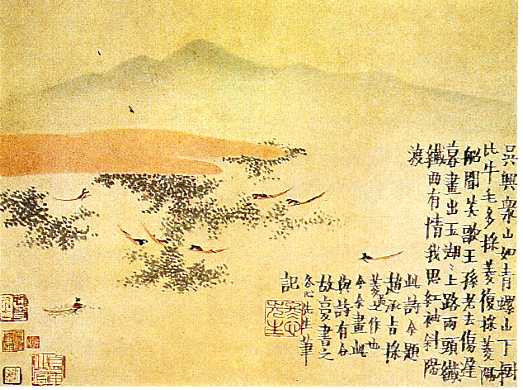 吳興衆山如青螺山下樹
比牛毛多採菱復採菱隔
船聞笑歌王孫老去傷遲
暮畫出玉湖〻上路兩頭纖
纖曲有情我思紅袖斜陽
渡
此詩余題
趙承旨採
菱圖作也
今余畫此
與詩有合
故書之
冬心先生筆
記